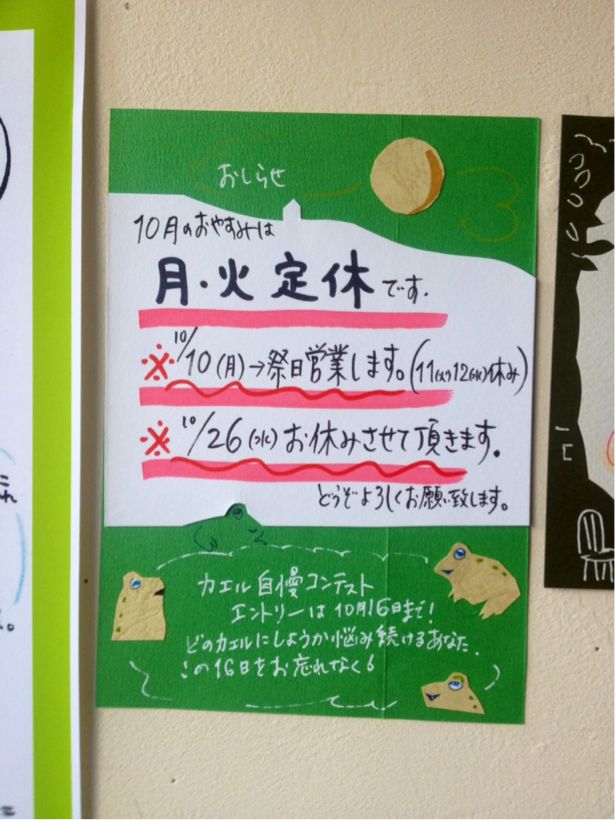 おしらせ
10月のおやすみは
月・火定休です.
※10/10(月)→祭日営業します。(11(火)12(水)休み)
※10/26(水)お休みさせて頂きます。
どうぞよろしくお願い致します。
カエル自慢コンテスト
エントリーは10月16日まで!
どのカエルにしようか悩み続けるあなた.
この16日をお忘れなく!